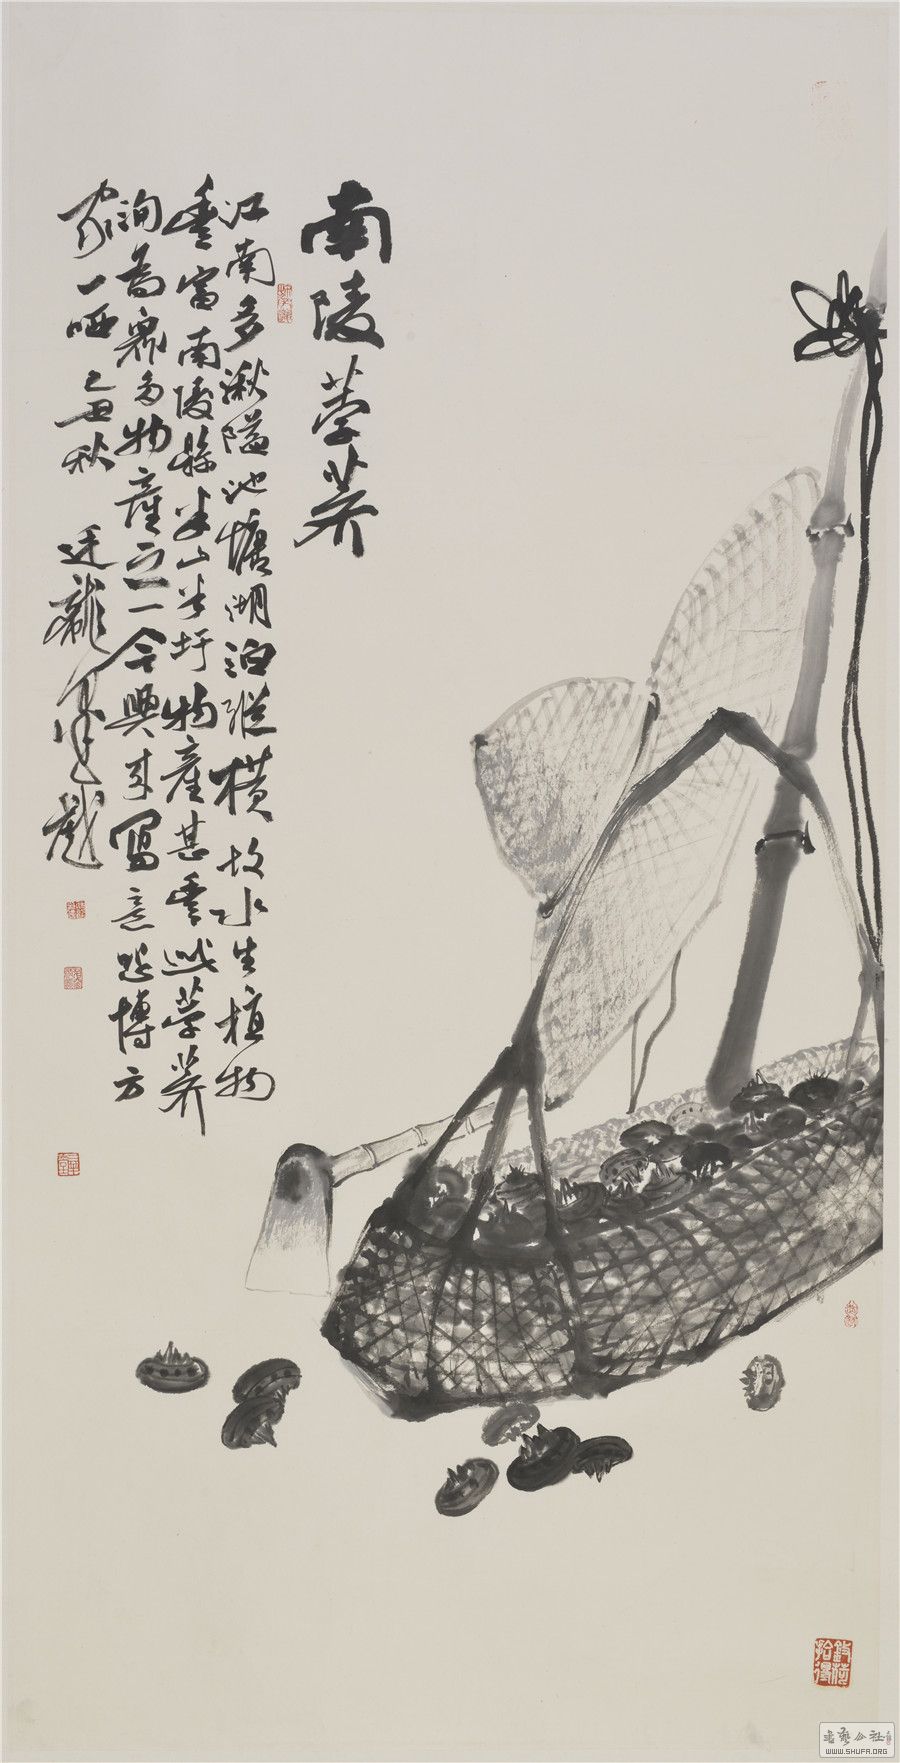 南陵荸荠
江南多湫隘池塘湖泊纵横故水生植物
丰富南陵县半山半圩物产甚丰此荸荠
洵为众多物产之一今兴来写意以博方
家一哂己丑秋
廷龙
书艺公社
WWW.SHUFA.ORG